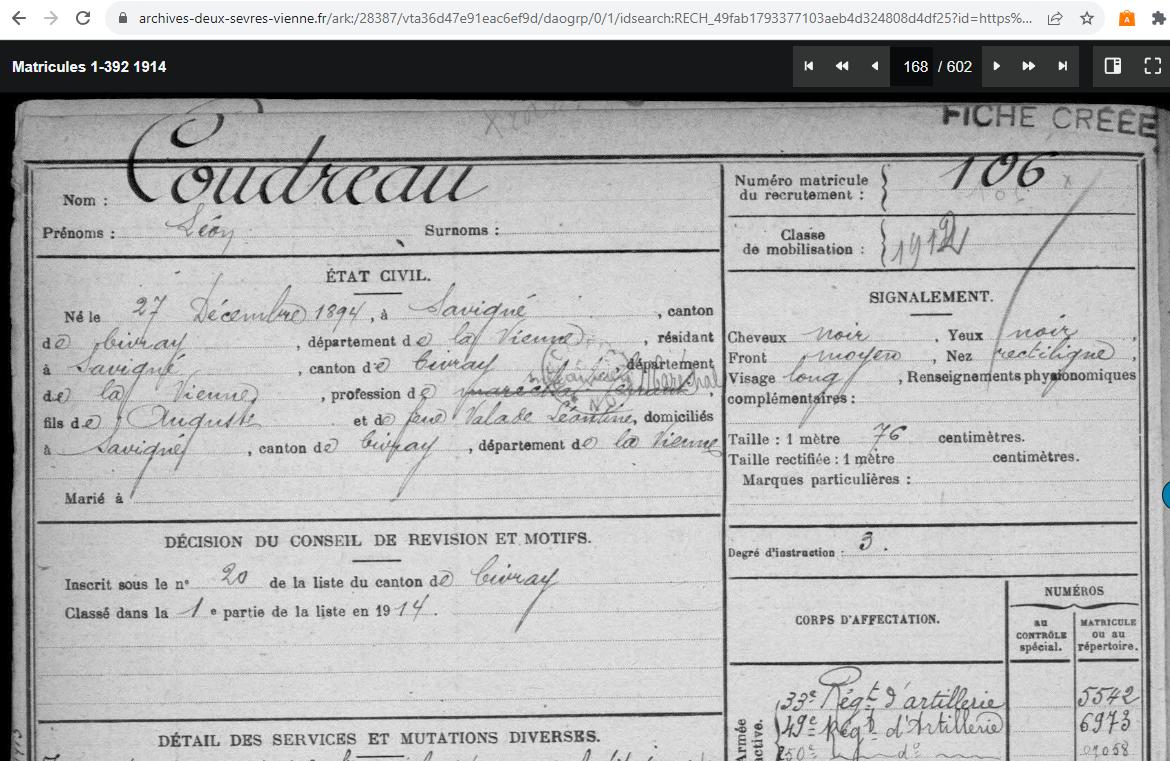 archives-deux-sevres-vienne.fr/ark:/28387/vta36d47e91eac6ef9d/daogrp/0/1/idsearch:RECH_49fab1793377103aeb4d324808d4df25?id=https%...
Matricules 1-392 1914
168 / 602
FICHE CRÉÉE
Nom : Coudreau
Prénoms : Léon Surnoms :
Numéro matricule du recrutement : 106
Classe de mobilisation : 1912
ÉTAT CIVIL.
Né le 27 Décembre 1894, à Savigné, canton
de Civray, département de la Vienne, résidant
à Savigné, canton de Civray, département
de la Vienne, profession de Maréchal
fils de Auguste et de feue Valade Léontine, domiciliés
à Savigné, canton de Civray, département de la Vienne
Marié à
SIGNALEMENT.
Cheveux noir, Yeux noir
Front moyen, Nez rectiligne,
Visage long, Renseignements physionomiques
complémentaires :
Taille : 1 mètre 76 centimètres.
Taille rectifiée : 1 mètre centimètres.
Marques particulières :
Degré d'instruction : 3.
DÉCISION DU CONSEIL DE REVISION ET MOTIFS.
Inscrit sous le n° 20 de la liste du canton de Civray
Classé dans la 1e partie de la liste en 1914.
CORPS D'AFFECTATION.
NUMÉROS
au CONTRÔLE spécial.
MATRICULE ou au répertoire.
Armée active.
33e Régt d'artillerie 5542
49e Régt d'Artillerie 6973
50e do
DÉTAIL DES SERVICES ET MUTATIONS DIVERSES.